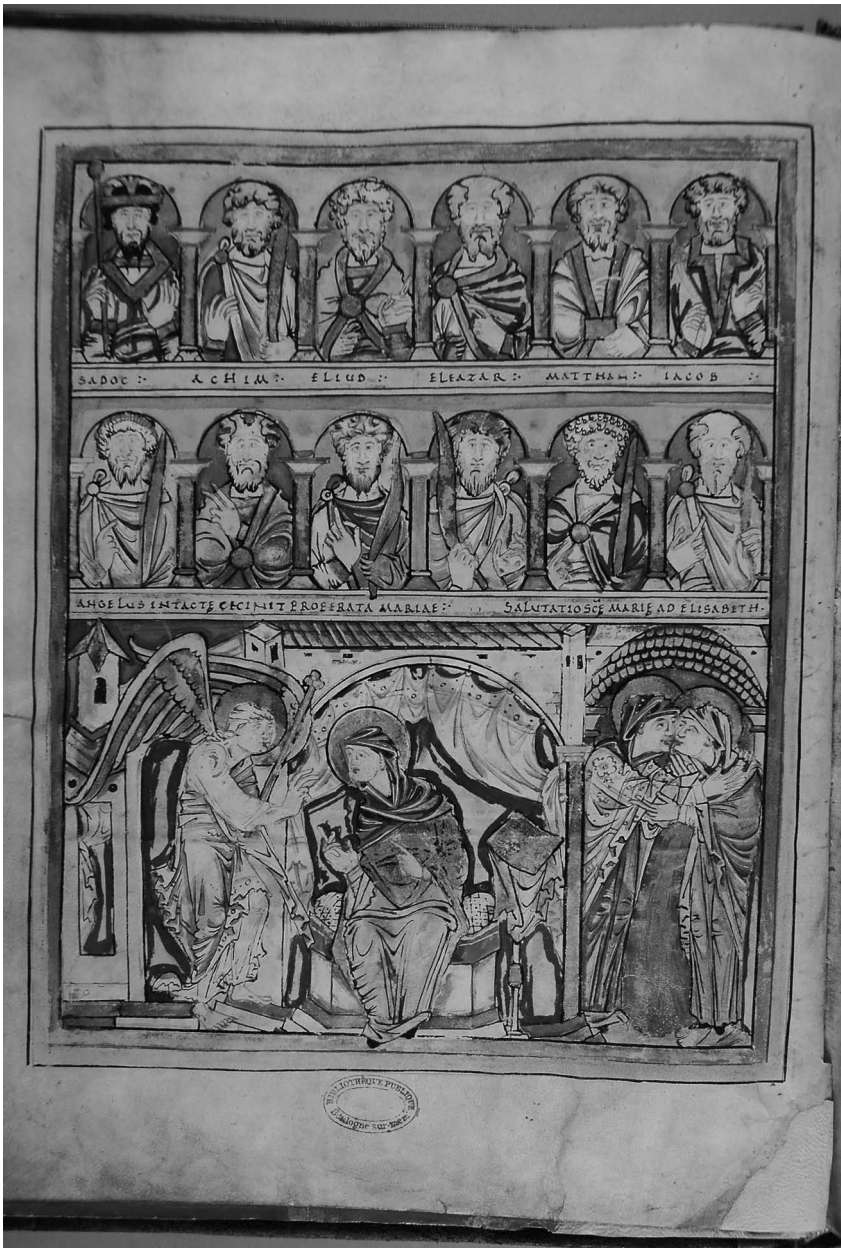 SADOC :· ACHIM :· ELIUD :· ELEAZAR :· MATTHAN :· IACOB :·
ANGELUS INTACTĘ CECINIT PROPERATA MARIAE :· SALUTATIO SCĘ MARIĘ AD ELISABETH ·
BIBLIOTHÈQUE PUBLIQUE
Boulogne sur-mer